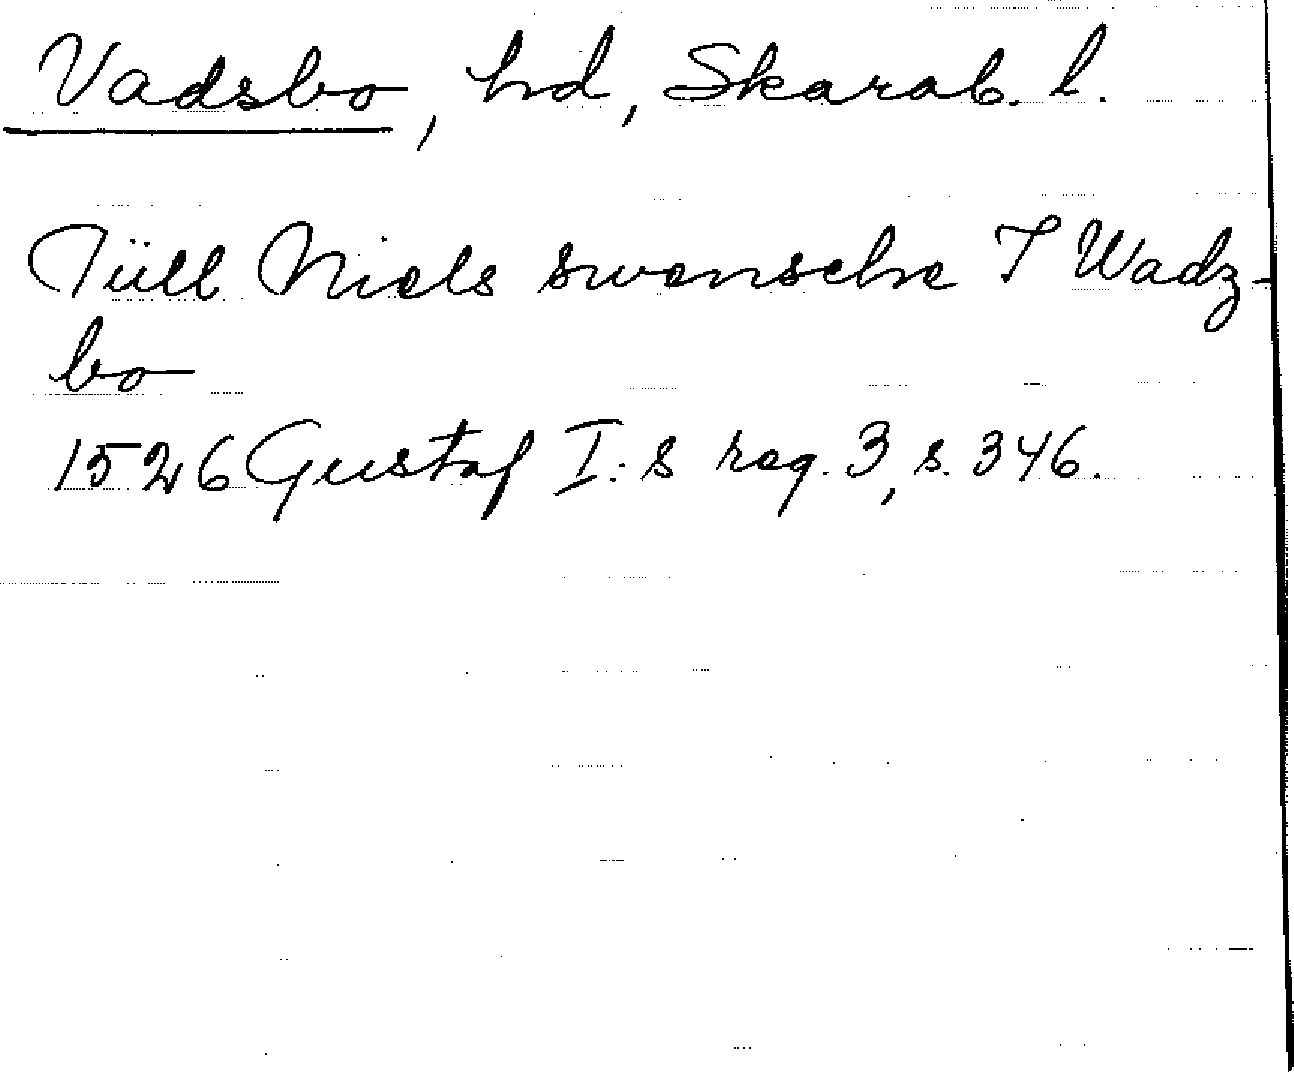 Vadsbo, hd, Skarab. l.
Tüll Niels swensche I Wadz-
bo
1526 Gustaf I:s reg. 3, s. 346.